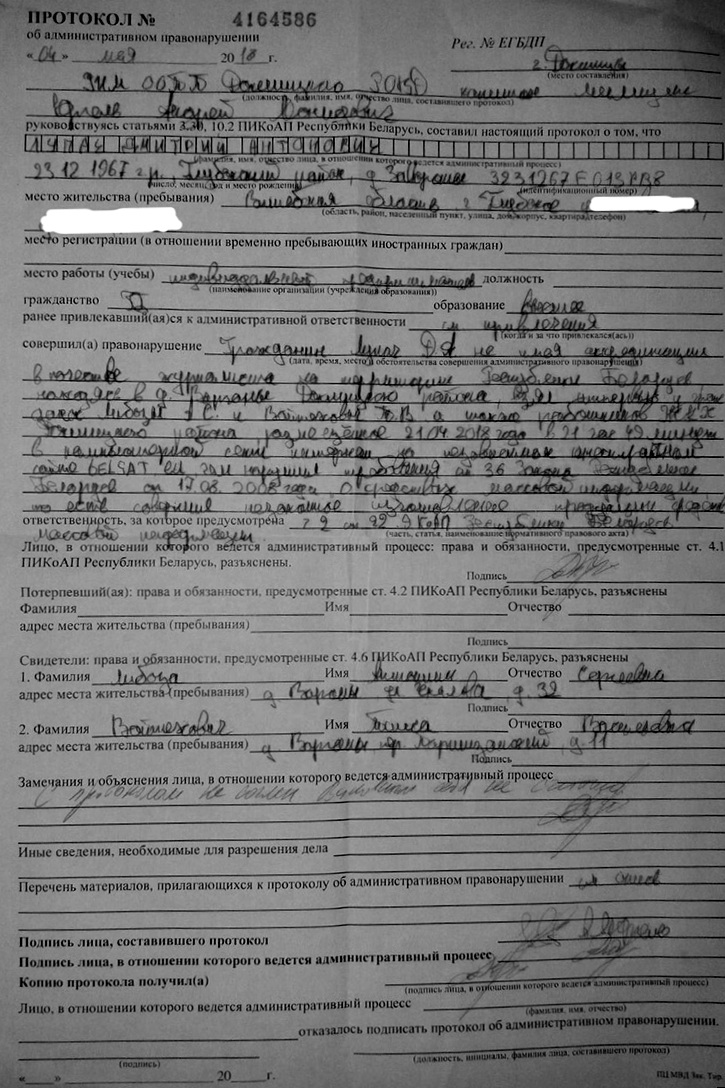 ПРОТОКОЛ № 4164586
об административном правонарушении
« 04 » мая 2018 г. Рег. № ЕГБДП
г. Докшицы
(место составления)
Докшицкого РОВД
(должность, фамилия, имя, отчество лица, составившего протокол)
Андрей
руководствуясь статьями 3.30, 10.2 ПИКоАП Республики Беларусь, составил настоящий протокол о том, что
ЛУПАЧ ДМИТРИЙ АНТОНОВИЧ
(фамилия, имя, отчество лица, в отношении которого ведется административный процесс)
23.12.1967 г.р., Глубокский район, д.
(число, месяц, год и место рождения) (идентификационный номер)
место жительства (пребывания) Витебская область г. Глубокое
(область, район, населенный пункт, улица, дом, корпус, квартира, телефон)
место регистрации (в отношении временно пребывающих иностранных граждан)
место работы (учебы) индивидуальный предприниматель должность
(наименование организации (учреждения образования))
гражданство образование высшее
ранее привлекавший(ая)ся к административной ответственности см привлечения
(когда и за что привлекался(ась))
совершил(а) правонарушение Гражданин Лупач Д.А не имея аккредитации
(дата, время, место и обстоятельства совершения административного правонарушения)
в качестве журналиста на территории Республики Беларусь
находясь в д. Докшицкого района, взял интервью у граж
и Войтехович Т.В а также работников ЖКХ
Докшицкого района размещённое 21.04.2018 года в 21 час 49 минут
в сети интернет на
сайте BELSAT.eu, чем нарушил ст 36 Закона Республики
Беларусь от 17.08.2008 года О средствах массовой информации
то есть совершил незаконное изготовление продукции средств
ответственность, за которое предусмотрена ч 2 ст 22.9 КоАП Республики Беларусь
массовой информации. (часть, статья, наименование нормативного правового акта)
Лицо, в отношении которого ведется административный процесс: права и обязанности, предусмотренные ст. 4.1
ПИКоАП Республики Беларусь, разъяснены.
Подпись
Потерпевший(ая): права и обязанности, предусмотренные ст. 4.2 ПИКоАП Республики Беларусь, разъяснены
Фамилия Имя Отчество
адрес места жительства (пребывания)
Подпись
Свидетели: права и обязанности, предусмотренные ст. 4.6 ПИКоАП Республики Беларусь, разъяснены
1. Фамилия Имя Отчество Сергеевна
адрес места жительства (пребывания) д. ул. д. 32
Подпись
2. Фамилия Войтехович Имя Отчество Васильевна
адрес места жительства (пребывания) д. д. 11
Подпись
Замечания и объяснения лица, в отношении которого ведется административный процесс
С протоколом не согласен виновным себя не считаю
Иные сведения, необходимые для разрешения дела
Перечень материалов, прилагающихся к протоколу об административном правонарушении см опись
Подпись лица, составившего протокол
Подпись лица, в отношении которого ведется административный процесс
Копию протокола получил(а)
(подпись лица, в отношении которого ведется административный процесс)
Лицо, в отношении которого ведется административный процесс
(фамилия, имя, отчество)
отказалось подписать протокол об административном правонарушении.
(подпись) (должность, инициалы, фамилия лица, составившего протокол)
« » 20 г. ПЦ МВД Зак. Тир